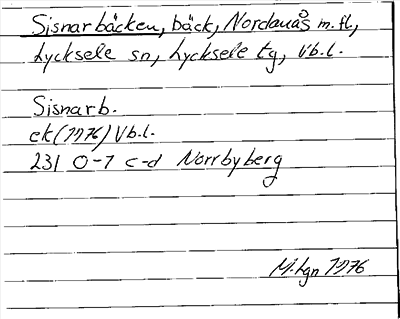 Sisnarbäcken, bäck, Nordanås m.fl,
Lycksele sn, Lycksele tg, Vb.l.
Sisnarb.
ek (1976) Vb.l.
231 0-1 c-d Norrbyberg
M.Lgn 1976